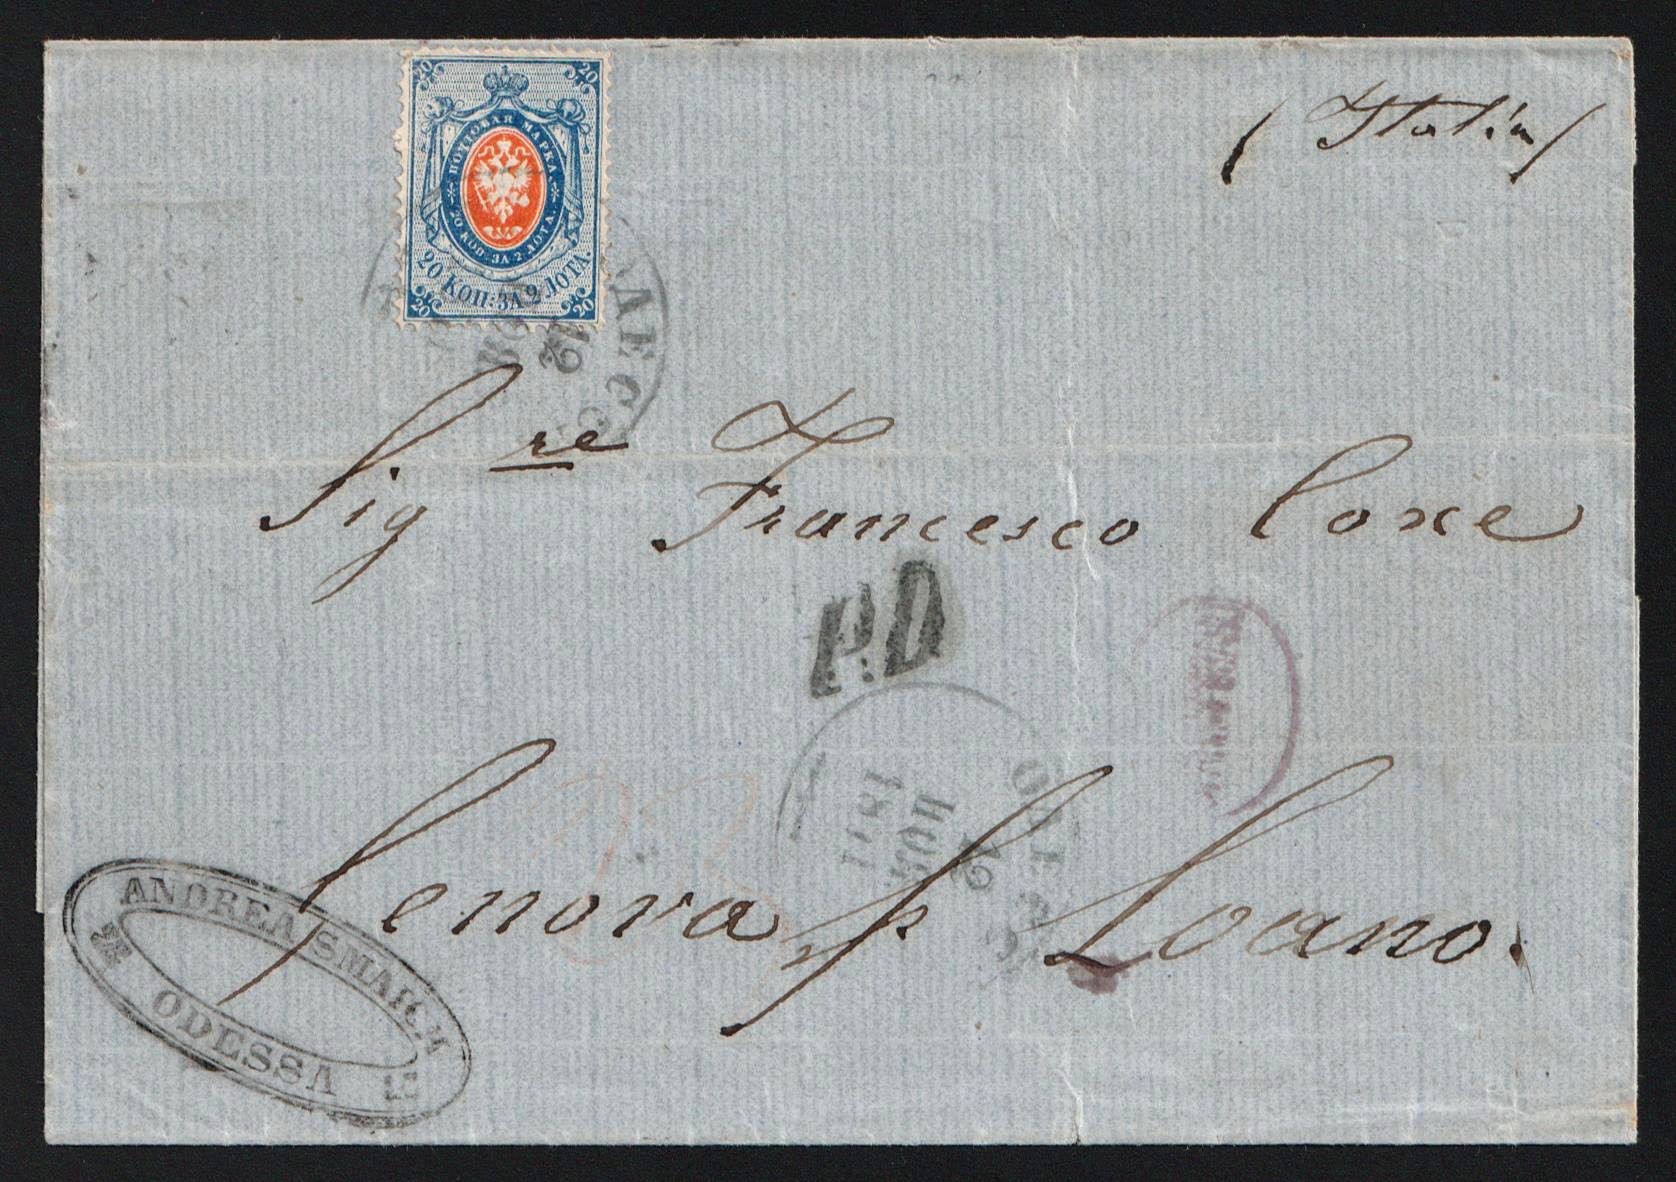 20 20
ПОЧТОВАЯ МАРКА
20 КОП. ЗА 2 ЛОТА.
20 КОП: ЗА 2 ЛОТА
20 20
(Italia)
ОДЕСС
12
Sigre Francesco Coxe
P.D
ОДЕСС
12
НОЯ
1871
Genova p Loano.
ANDREA SMAICH
ODESSA